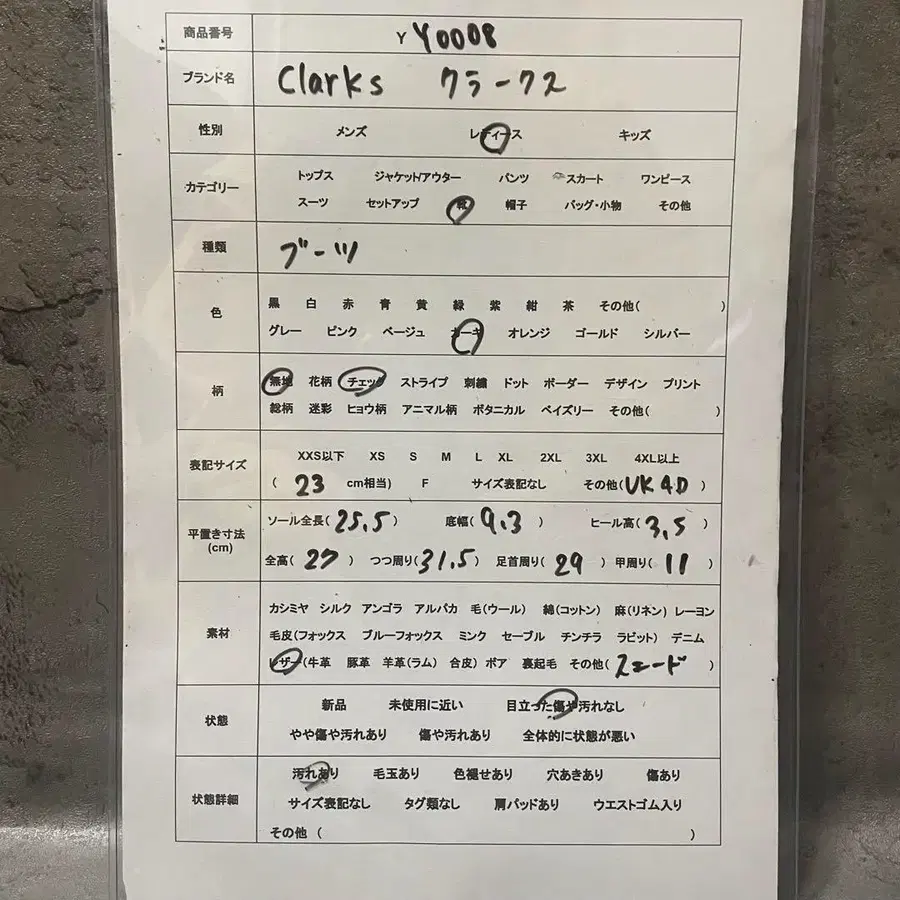 商品番号 Y Y0008
ブランド名 Clarks クラークス
性別 メンズ レディース キッズ
カテゴリー
トップス ジャケット/アウター パンツ スカート ワンピース
スーツ セットアップ 靴 帽子 バッグ・小物 その他
種類 ブーツ
色
黒 白 赤 青 黄 緑 紫 紺 茶 その他( )
グレー ピンク ベージュ カーキ オレンジ ゴールド シルバー
柄
無地 花柄 チェック ストライプ 刺繍 ドット ボーダー デザイン プリント
総柄 迷彩 ヒョウ柄 アニマル柄 ボタニカル ペイズリー その他( )
表記サイズ
XXS以下 XS S M L XL 2XL 3XL 4XL以上
( 23 cm相当) F サイズ表記なし その他(UK4D )
平置き寸法
(cm)
ソール全長( 25.5 ) 底幅( 9.3 ) ヒール高( 3.5 )
全高( 27 ) つつ周り(31.5 ) 足首周り( 29 ) 甲周り( 11 )
素材
カシミヤ シルク アンゴラ アルパカ 毛(ウール) 綿(コットン) 麻(リネン) レーヨン
毛皮(フォックス ブルーフォックス ミンク セーブル チンチラ ラビット) デニム
レザー(牛革 豚革 羊革(ラム) 合皮) ボア 裏起毛 その他( スエード )
状態
新品 未使用に近い 目立った傷や汚れなし
やや傷や汚れあり 傷や汚れあり 全体的に状態が悪い
状態詳細
汚れあり 毛玉あり 色褪せあり 穴あきあり 傷あり
サイズ表記なし タグ類なし 肩パッドあり ウエストゴム入り
その他 ( )